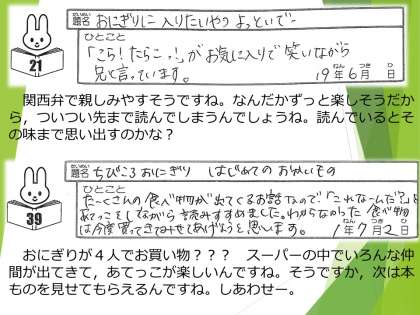 だいめい
題名 おにぎりに 入りたいやつ よっといでー
ひとこと
「こら!たらこっ!」がお気に入りで笑いながら
兄と言っています。
ねん がつ にち
19年6月 日
21
関西弁で親しみやすそうですね。なんだかずっと楽しそうだか
ら,ついつい先まで読んでしまうんでしょうね。読んでいるとそ
の味まで思い出すのかな？
だいめい
題名 ちびころおにぎり はじめてのおかいもの
ひとこと
たーくさんの食べ物が出てくるお話なので、「これなーんだ?」と
あてっこをしながら読みすすめました。わからなかった食べ物
は今度買ってきてみせてあげようと思います。
ねん がつ にち
1年7月2日
39
おにぎりが４人でお買い物？？？　スーパーの中でいろんな仲
間が出てきて，あてっこが楽しいんですね。そうですか，次は本
ものを見せてもらえるんですね。しあわせー。